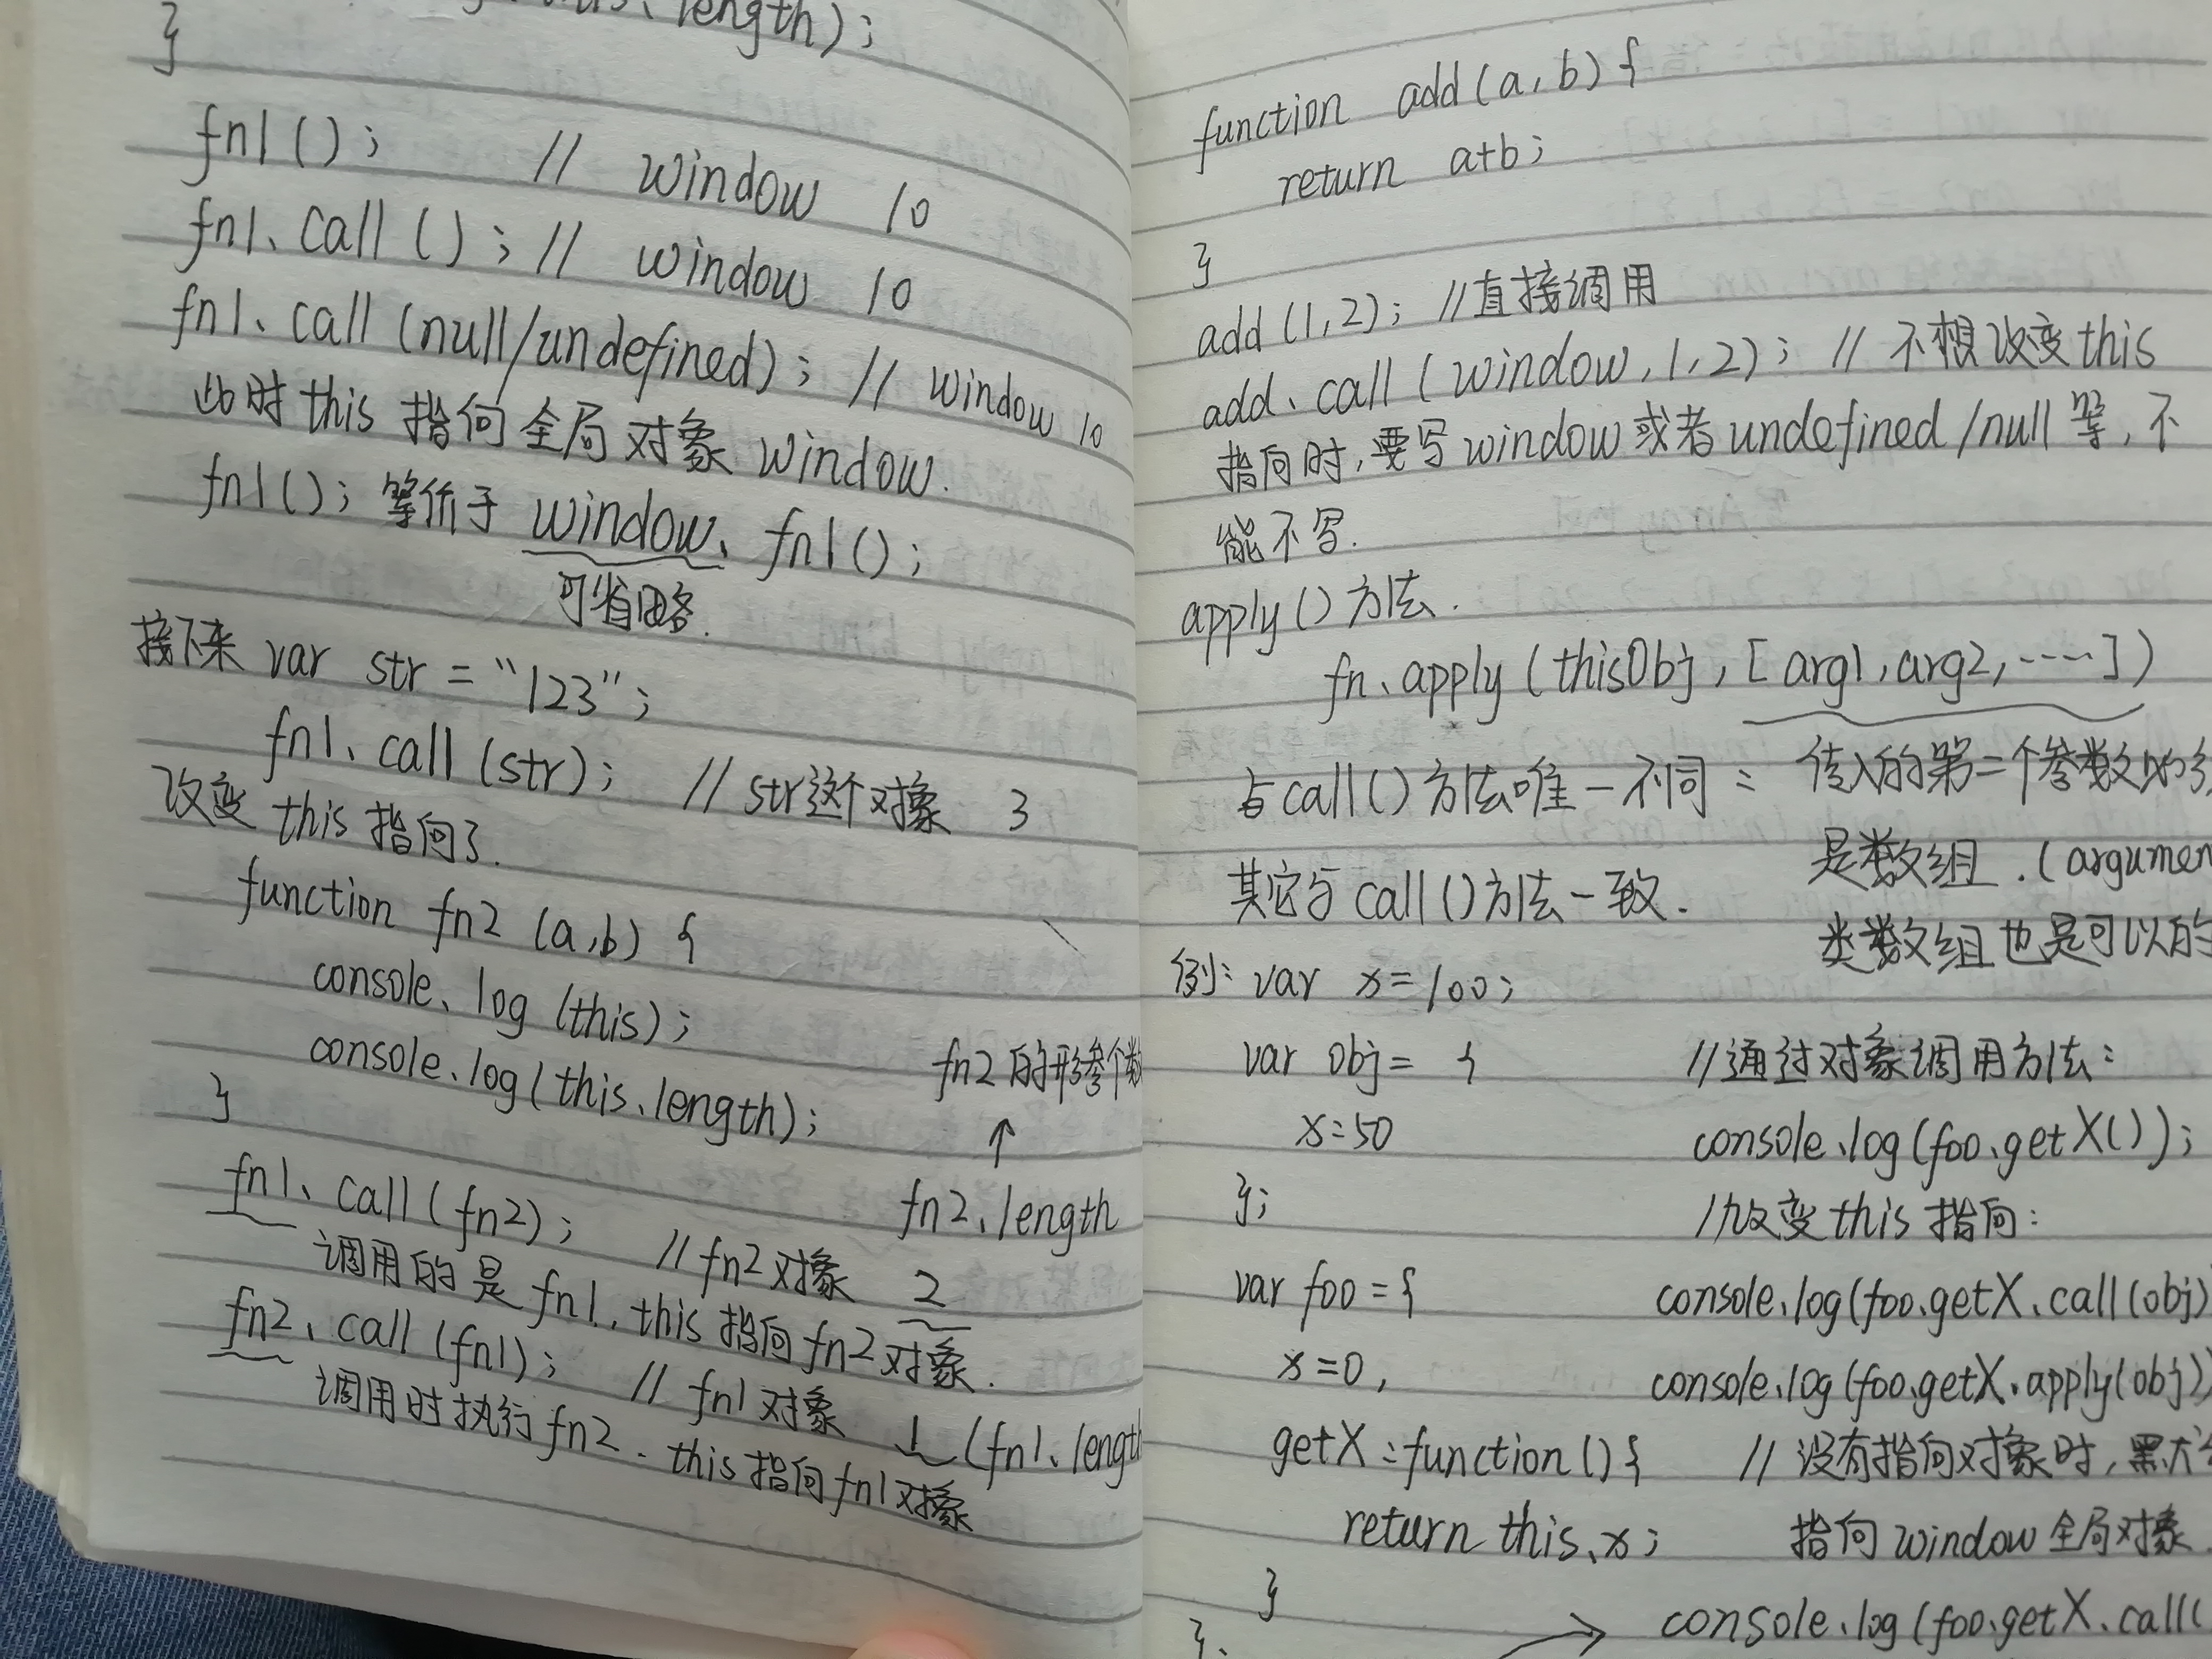 length);
}
fn1(); // window 10
fn1.call(); // window 10
fn1.call(null/undefined); // window 10
此时this指向全局对象window.
fn1(); 等价于 window. fn1();
可省略.
接下来 var str = "123";
fn1.call(str); // str这个对象 3
改变this指向了.
function fn2 (a,b) {
console.log (this);
console.log(this.length);
}
fn2的形参个数
↑
fn2.length
fn1.call(fn2); // fn2对象 2
调用的是fn1,this指向fn2对象.
fn2.call(fn1); // fn1对象 1 (fn1.length
调用时执行fn2. this指向fn1对象
function add(a,b){
return a+b;
}
add(1,2); //直接调用
add.call(window,1,2); // 不想改变this
指向时,要写window或者undefined/null等,不
能不写.
apply()方法.
fn.apply(thisObj, [arg1,arg2,……])
与call()方法唯一不同: 传入的第二个参数必须
是数组.(argumen
类数组也是可以的
其它与call()方法一致.
例: var x=100;
var obj= {
x=50
};
var foo={
x=0,
getX:function(){
return this.x;
}
}.
//通过对象调用方法:
console.log(foo.getX());
//改变this指向:
console.log(foo.getX.call(obj)
console.log(foo.getX.apply(obj))
// 没有指向对象时,默认
指向window全局对象.
→ console.log(foo.getX.call(